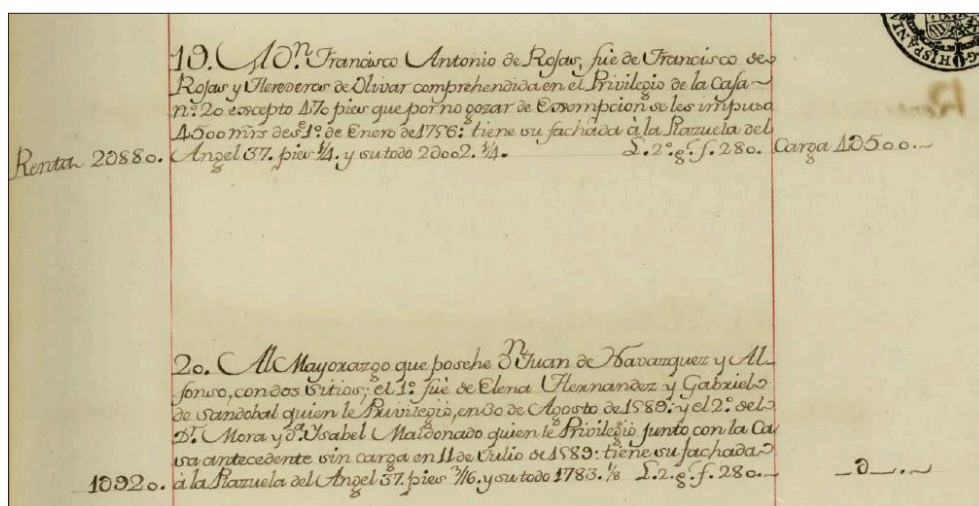 19. A Dn. Francisco Antonio de Rojas, fue de Francisco de
Rojas y Herederos de Olivar comprehendida en el Privilegio de la Casa
nº. 20 escepto 470 pies que por no gozar de Essempcion se les impuso
4500 mrs desde 1º. de Enero de 1756: tiene su fachada à la Plazuela del
Renta 2ϑ880. Angel 37. pies 1/4. y su todo 2ϑ002. 1/4. L. 2º. g. f. 280. Carga 4ϑ500.
20. Al Mayorazgo que poshe Dn. Juan de Navazquez y Al
fonso, con dos sitios; el 1º. fué de Elena Hernandez y Gabriel
de Sandobal quien le Privilegiò, en 30 de Agosto de 1589: y el 2º. del
Dr. Mora y Dª. Ysabel Maldonado quien le Privilegiò junto con la Ca
sa antecedente sin carga en 11 de Julio de 1589: tiene su fachada
1ϑ920. à la Plazuela del Angel 37. pies 3/16. y su todo 1783. 1/8 L. 2. g. f. 280. ϑ
HISPANIA